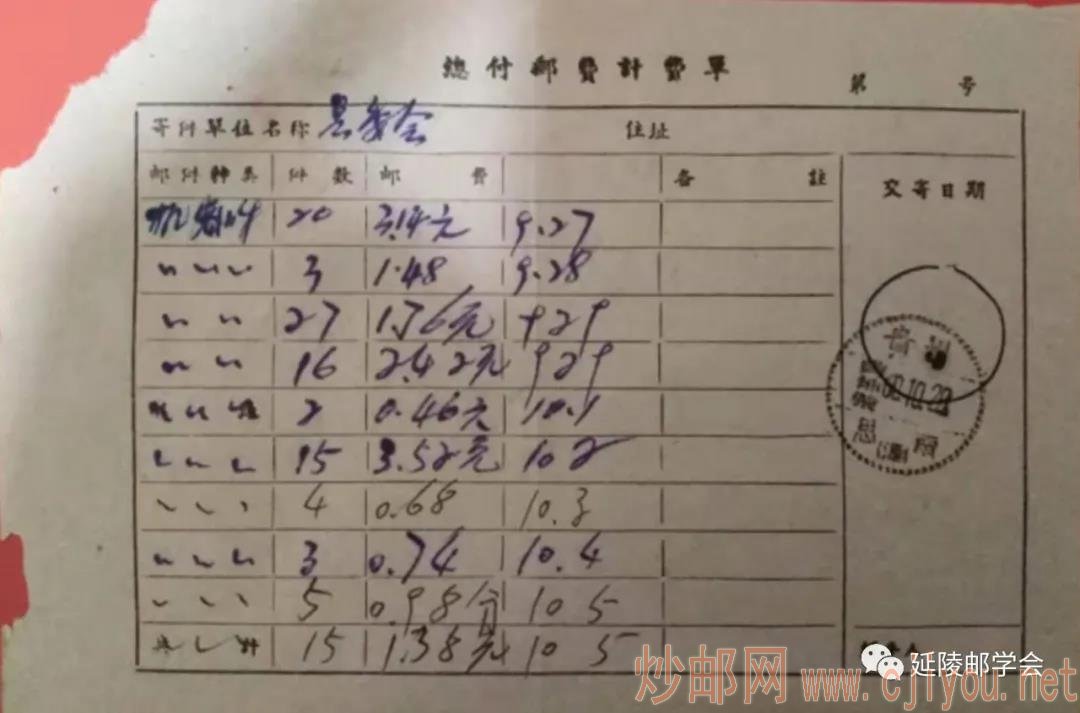 總付郵費計費單
第 号
寄件單位名称 县委会 住址
邮件种类 件数 邮费 备註 交寄日期
20 3.14元 9.27
〃 〃 〃 3 1.48 9.28
〃 〃 27 1.76元 9 29
〃 〃 16 2.42元 9 29
〃 〃 2 0.46元 10.1
〃 〃 〃 15 3.52元 10 2
〃 〃 〃 4 0.68 10.3
〃 〃 〃 3 0.74 10.4
〃 〃 〃 5 0.98分 10 5
〃 15 1.38元 10 5
贵州
10.20
思南
延陵邮学会
炒邮网 www.cjiyou.net